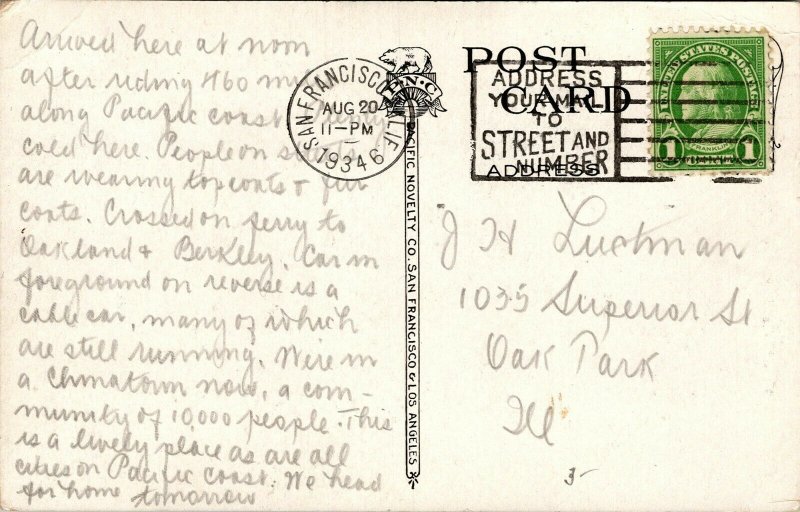 Arrived here at noon
after riding 460
along Pacific coast.
cold here People on
are wearing topcoats & fur
coats. Crossed on ferry to
Oakland & Berkley. Car in
foreground on reverse is a
cable car, many of which
are still running. We're in
a Chinatown now, a com-
munity of 10,000 people. This
is a lively place as are all
cities on Pacific Coast. We head
for home tomorrow
SAN FRANCISCO, CALIF.
AUG 20
11-PM
1934
6
P.N.C.
PACIFIC NOVELTY CO. SAN FRANCISCO & LOS ANGELES
POST
CARD
ADDRESS
YOUR MAIL
TO
STREET AND
NUMBER
ADDRESS
UNITED STATES POSTAGE
FRANKLIN
1 1
J H Lustman
1035 Superior St
Oak Park
Ill
3-